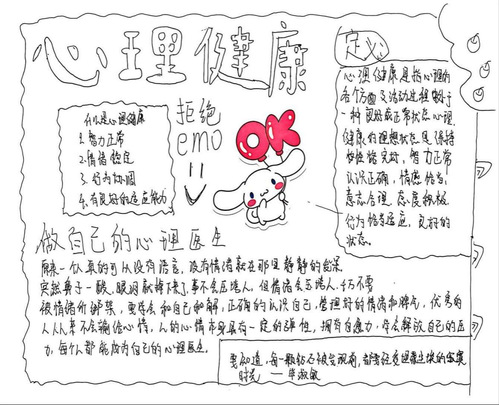 心理健康
什么是心理健康
1.智力正常
2.情绪稳定
3.行为协调
4.有良好的适应能力
拒绝
emo
OK
定义
心理健康是指心理的
各个方面及活动过程处于
一种良好或正常状态心理
健康的理想状态是保持
性格完好,智力正常
认识正确,情感恰当,
意志合理,态度积极,
行为恰当适应,良好的
状态。
做自己的心理医生
原来一个人真的可以没有语言,没有情绪就在那里静静的发呆
突然鼻子一酸,眼泪就掉下来了,事不会压垮人,但情绪会压垮人,千万不要
被情绪所绑架,要学会和自己和解,正确的认识自己,管理好的情绪和脾气,优秀的
人从来不会输给心情,人的心情
具有一定的弹性,拥有自愈力,
解放自己的压
力,每个人都能成为自己的心理医生。
要知道,每一颗钻石被发现前,都要经受
时光 — 毕淑敏